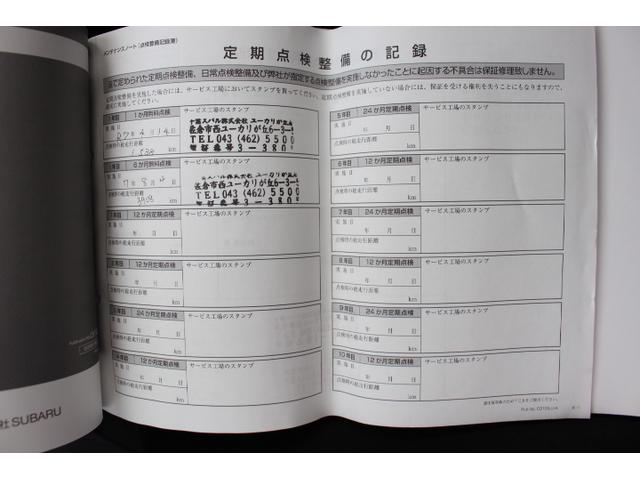 メンテナンスノート(点検整備記録簿)
定期点検整備の記録
法で定められた定期点検整備、日常点検整備及び弊社が指定する点検整備を実施しなかったことに起因する不具合は保証修理致しません。
定期点検整備を実施した場合には、サービス工場においてスタンプを貰ってください。定期点検整備を実施していない場合には、保証を受ける権利を失うことにもなりますので、
1か月無料点検
サービス工場のスタンプ
実施日
27年4月14日
点検時の総走行距離
km
千葉スバル株式会社 ユーカリが丘店
佐倉市西ユーカリが丘6-3-1
TEL043(462)5500
認証番号3-380
6か月無料点検
サービス工場のスタンプ
実施日
点検時の総走行距離
km
佐倉市西ユーカリが丘6-3-1
TEL043(462)5500
認証番号3-380
1年目 12か月定期点検
サービス工場のスタンプ
実施日
年 月 日
点検時の総走行距離
km
2年目 12か月定期点検
サービス工場のスタンプ
実施日
年 月 日
点検時の総走行距離
km
サービス工場のスタンプ
年 月 日
点検時の総走行距離
km
12か月定期点検
サービス工場のスタンプ
年 月 日
点検時の総走行距離
km
5年目 24か月定期点検
サービス工場のスタンプ
実施日
年 月 日
点検時の総走行距離
km
6年目 12か月定期点検
サービス工場のスタンプ
実施日
年 月 日
点検時の総走行距離
km
7年目 24か月定期点検
サービス工場のスタンプ
実施日
年 月 日
点検時の総走行距離
km
8年目 12か月定期点検
サービス工場のスタンプ
実施日
年 月 日
点検時の総走行距離
km
9年目 24か月定期点検
サービス工場のスタンプ
実施日
年 月 日
点検時の総走行距離
km
10年目 12か月定期点検
サービス工場のスタンプ
実施日
年 月 日
点検時の総走行距離
km
社 SUBARU